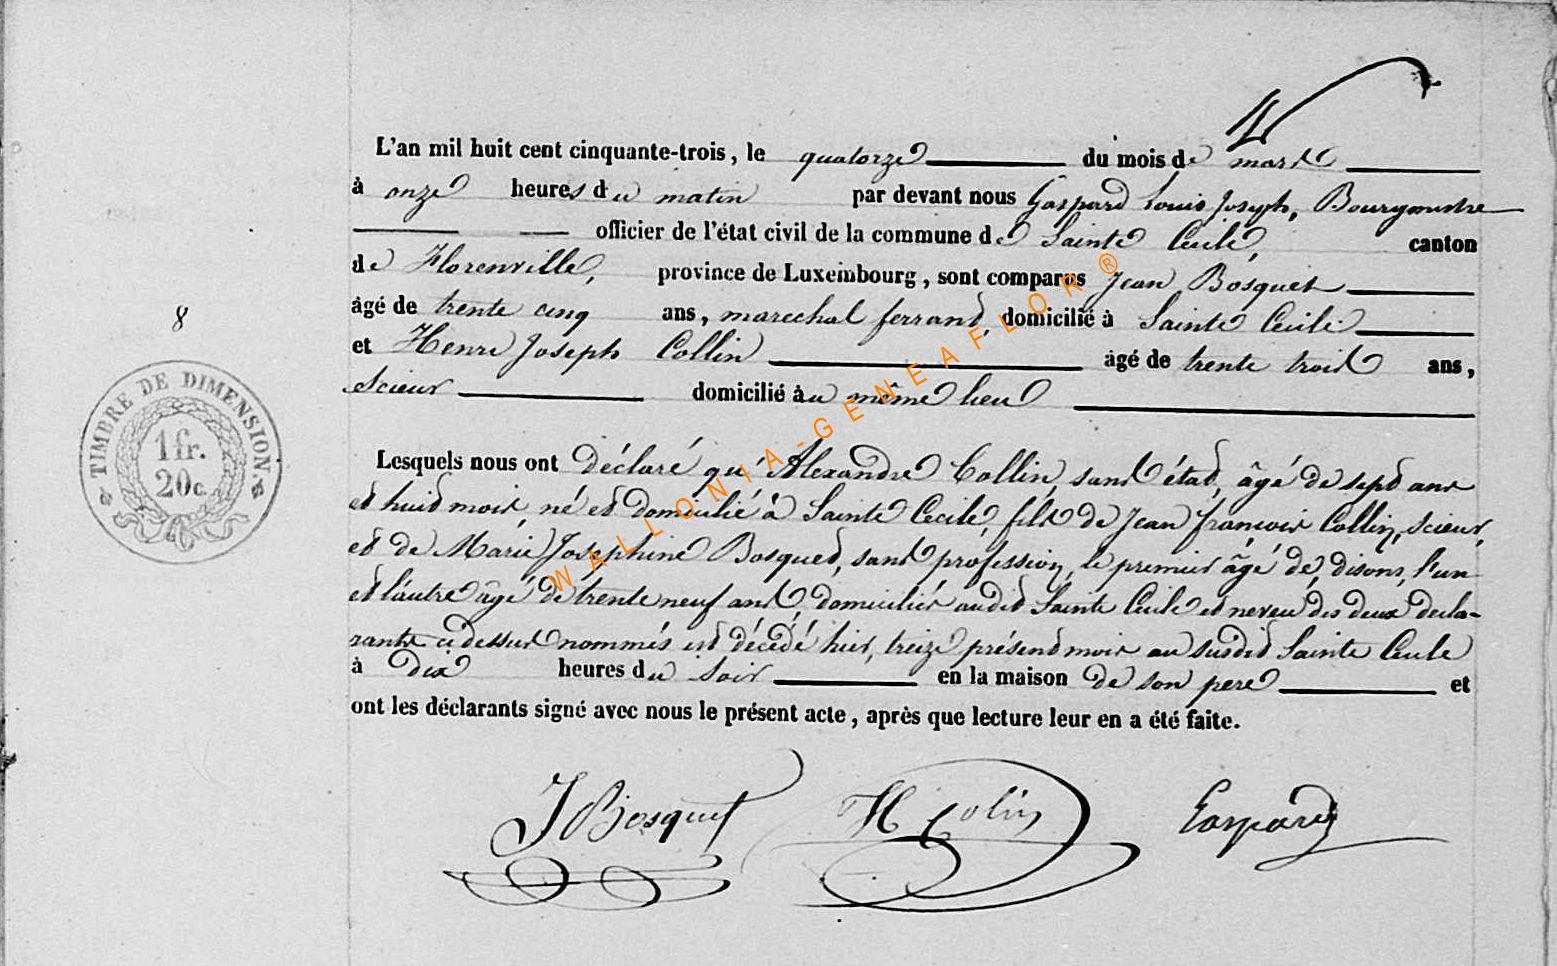 L'an mil huit cent cinquante-trois, le quatorze du mois de mars
à onze heures du matin par devant nous Gaspard Louis Joseph, Bourgmestre
officier de l'état civil de la commune de Sainte Cecile, canton
de Florenville, province de Luxembourg, sont comparus Jean Bosquet
âgé de trente cinq ans, marechal ferrand, domicilié à Sainte Cecile
et Henri Joseph Collin âgé de trente trois ans,
scieur domicilié au même lieu
8
TIMBRE DE DIMENSION
1 fr.
20 c.
Lesquels nous ont déclaré qu'Alexandre Collin, sans état, âgé de sept ans
et huit mois, né et domicilié à Sainte Cecile, fils de Jean françois Collin, scieur,
et de Marie Josephine Bosquet, sans profession, le premier âgé de, disons, l'un
et l'autre âgé de trente neuf ans, domiciliés audit Sainte Cecile et neveu des deux decla-
rants ci dessus nommés est décédé hier, treize présent mois au susdit Sainte Cecile
à dix heures du soir en la maison de son pere et
ont les déclarants signé avec nous le présent acte, après que lecture leur en a été faite.
J Bosquet H Colin Gaspard
WALLONIA-GENEAFLOR ®